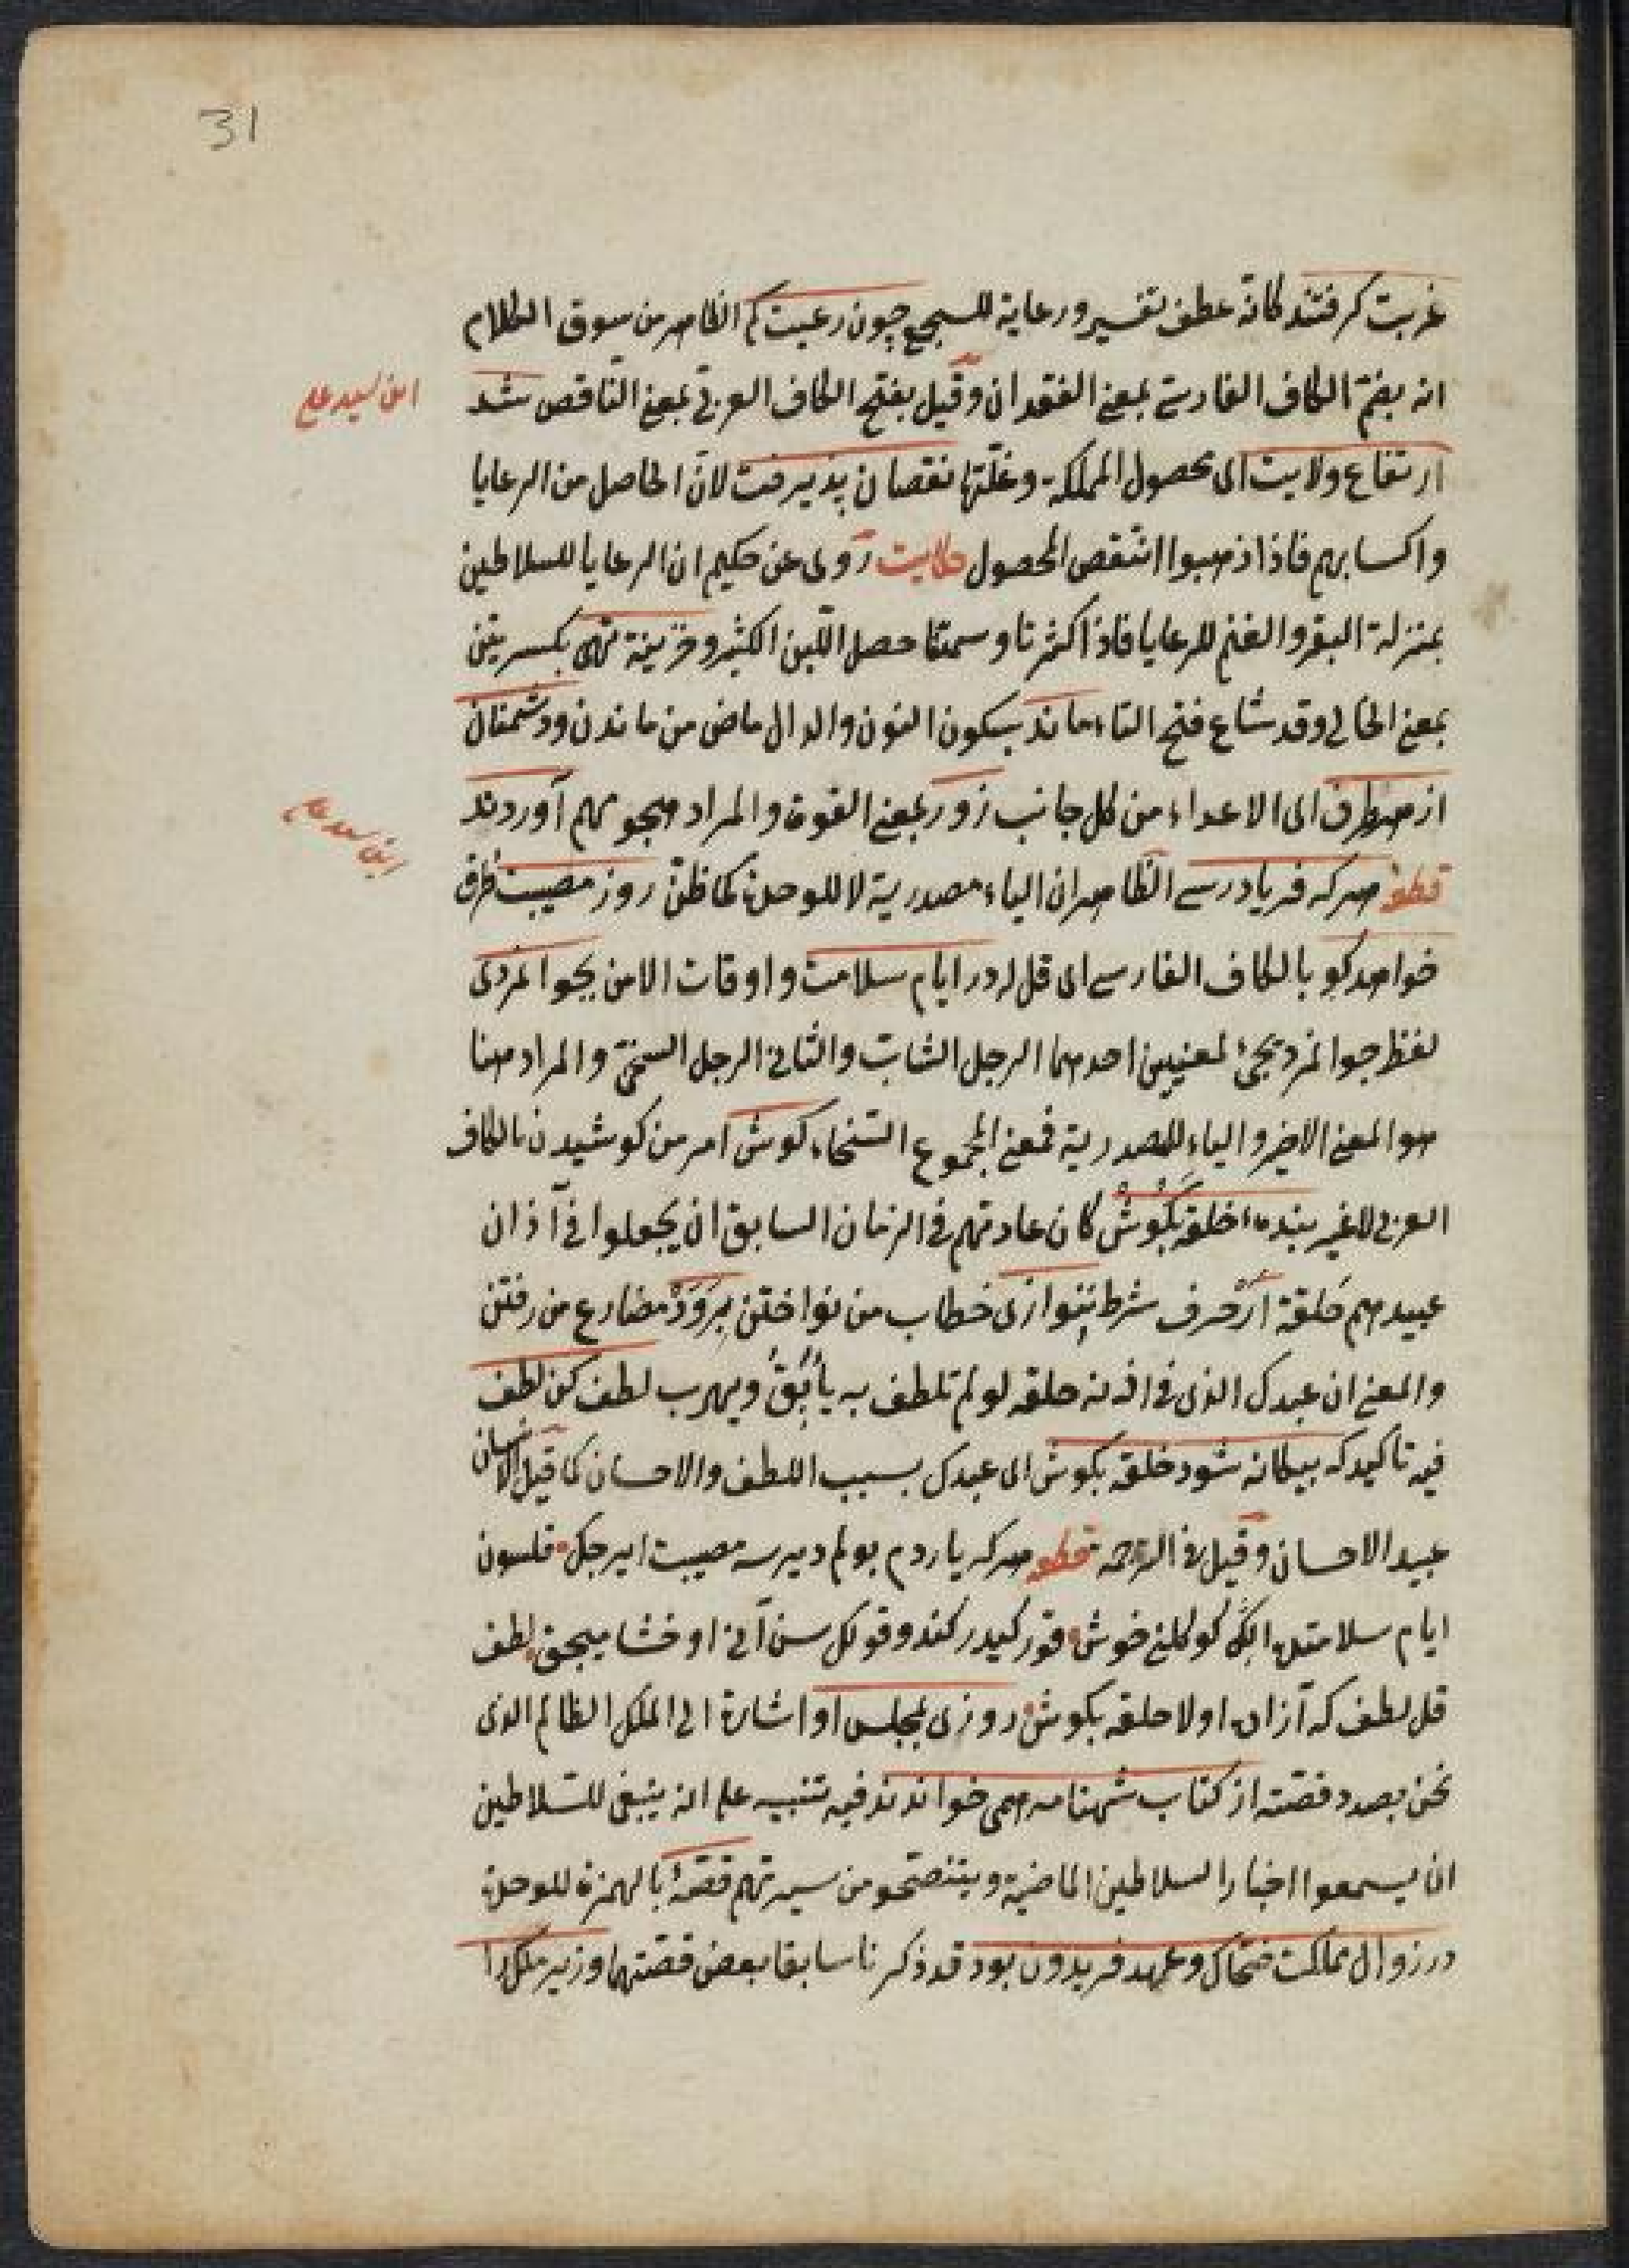 31
غربت كرفتند كانه عطف تفسير ورعاية للسجع چون رعيت كم الظاهر من سوق الكلام
انه بضم الكاف الفارسى بمعنى الفقدان وقيل بفتح الكاف العربى بمعنى الناقص شد
ابن سيد على
ارتفاع ولايت اى محصول المملكة وغلّتها نقصان پذيرفت لانّ الحاصل من الرعايا
واكسابهم فاذا ذهبوا انتقص المحصول حكايت روى عن حكيم ان الرعايا للسلاطين
بمنزلة البقر والغنم للرعايا فاذا كثرتا وسمنتا حصل اللّبن الكثير وخزينه تهى بكسرتين
بمعنى الخالى وقد شاع فتح التاء ماند بسكون النون والدال ماضى من ماندن ودشمنان
از هر طرف اى الاعداء من كل جانب زور بمعنى القوة والمراد هجوم آوردند
ابن سيد على
قطعه هركه فريادرسى الظاهر ان الياء مصدرية لا للوحدة كما ظنّ روز مصيبت ظرف
خواهد كو بالكاف الفارسى اى قل له در ايام سلامت واوقات الامن بجوانمردى
لفظ جوانمرد يجئ لمعنيين احدهما الرجل الشاب والثانى الرجل السخى والمراد هنا
هو المعنى الاخير والياء للمصدرية فمعنى المجموع السخاء كوش امر من كوشيدن بالكاف
العربى للغير بنده حلقه بكوش كان عادتهم فى الزمان السابق ان يجعلوا فى آذان
عبيدهم حلقة ار حرف شرط ننوازى خطاب من نواختن برود مضارع من رفتن
والمعنى ان عبدك الذى فى اذنه حلقه لو لم تلطف به يأبق ويهرب لطف كن لطف
فيه تاكيد كه بيكانه شود حلقه بكوش اى عبدك بسبب اللطف والاحسان كما قيل الانسان
عبيد الاحسان وقيل فى الترجمه قطعه هركه ياردم بولم دير سه مصيبت ايرجك قلسون
ايام سلامتده ايلكه كوكلنى خوش قور كيدر كندو قولك سن آنى اوخشاميجق لطف
قل لطف كه آزاد اولا حلقه بكوش روزى بمجلس او اشارة الى الملك الظالم الذى
نحن بصدد قصته از كتاب شهنامه همى خواندند فيه تنبيه على انه ينبغى للسّلاطين
ان يسمعوا اخبار السلاطين الماضية ويتنصحو من سيرتهم قصّهٔ بالهمزة للوحدة
در زوال مملكت ضحّاك وعهد فريدون بود قد ذكرنا سابقا بعض قصّتهما وزير ملك را